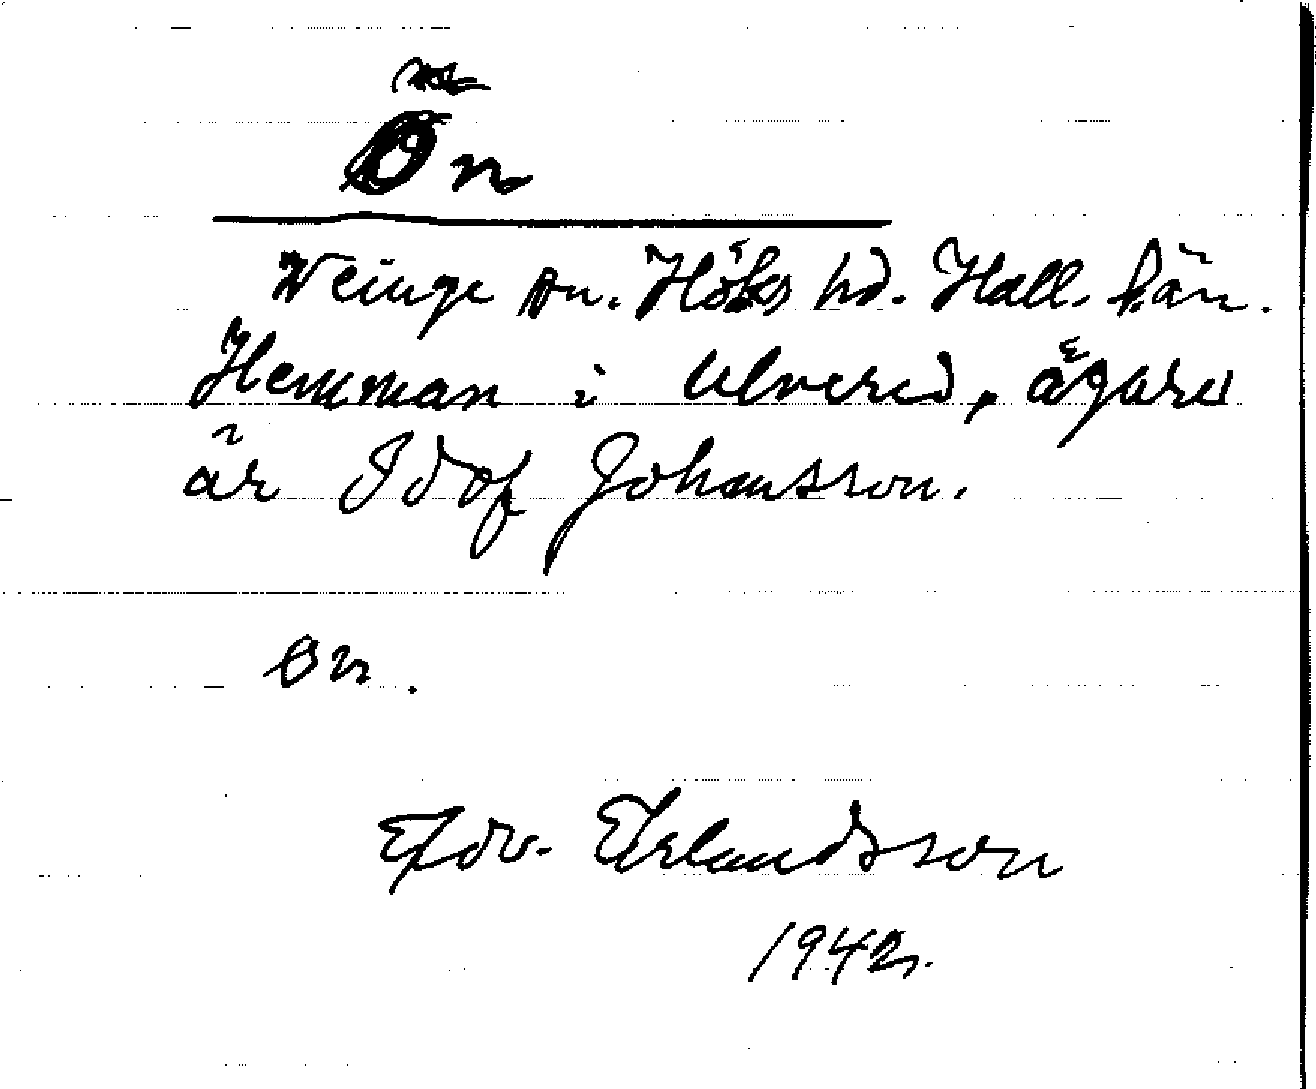 Ön
Weinge sn. Höks hd. Hall. län.
Hemman i Ulvered, ägare
är Idof Johansson.
Ön.
Edv. Erlandsson
1942.